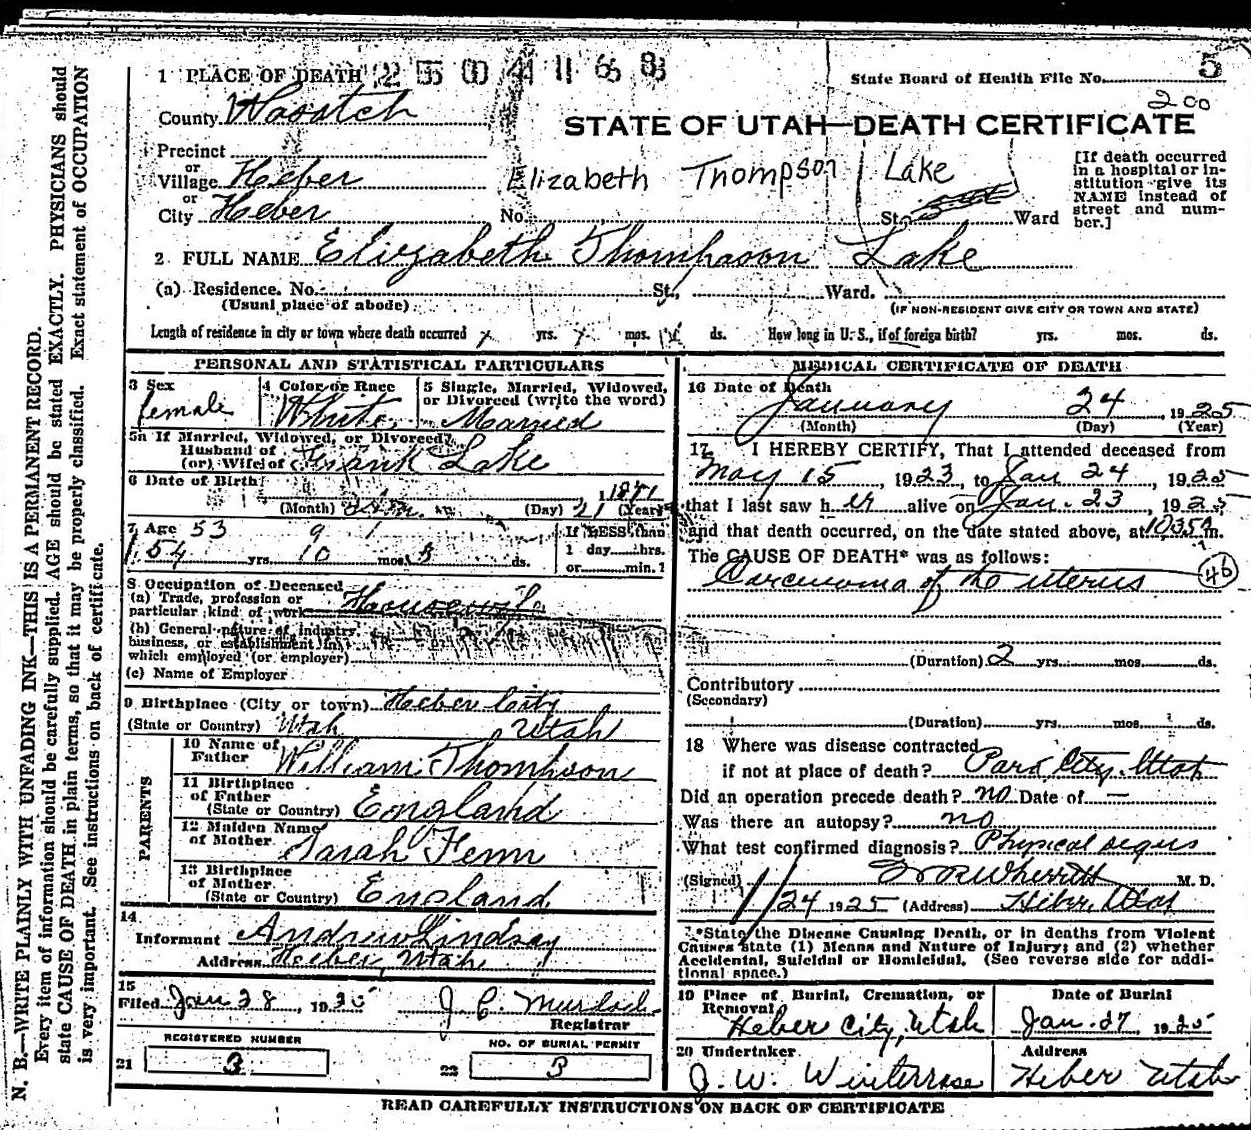 1 PLACE OF DEATH 2504168
State Board of Health File No. 5
200
County Wasatch
STATE OF UTAH—DEATH CERTIFICATE
Precinct
or
Village Heber
Elizabeth Thompson Lake
or
City Heber No. St. Ward
[If death occurred
in a hospital or in-
stitution give its
NAME instead of
street and num-
ber.]
2 FULL NAME Elizabeth Thompson Lake
(a) Residence. No. St., Ward.
(Usual place of abode)
(IF NON-RESIDENT GIVE CITY OR TOWN AND STATE)
Length of residence in city or town where death occurred yrs. mos. ds. How long in U. S., if of foreign birth? yrs. mos. ds.
PERSONAL AND STATISTICAL PARTICULARS
3 Sex
female
4 Color or Race
White
5 Single, Married, Widowed,
or Divorced (write the word)
Married
5a If Married, Widowed, or Divorced?
Husband of
(or) Wife of Frank Lake
6 Date of Birth
1871
(Month) (Day) 21 (Year)
7 Age 53 9 1
54 yrs. 10 mos. 3 ds.
If LESS than
1 day hrs.
or min.?
8 Occupation of Deceased
(a) Trade, profession or
particular kind of work Housewife
(b) General nature of industry
business, or establishment in
which employed (or employer)
(c) Name of Employer
9 Birthplace (City or town) Heber City
(State or Country) Utah Utah
PARENTS
10 Name of
Father William Thompson
11 Birthplace
of Father
(State or Country) England
12 Maiden Name
of Mother Sarah Fenn
13 Birthplace
of Mother
(State or Country) England
14
Informant Andrew Lindsay
Address Heber, Utah
15
Filed Jan 28, 1925
Registrar
REGISTERED NUMBER
21 3
NO. OF BURIAL PERMIT
22 3
MEDICAL CERTIFICATE OF DEATH
16 Date of Death
January 24, 1925
(Month) (Day) (Year)
17 I HEREBY CERTIFY, That I attended deceased from
May 15, 1923, to Jan 24, 1925
that I last saw her alive on Jan. 23, 1925
and that death occurred, on the date stated above, at m.
The CAUSE OF DEATH* was as follows:
Carcinoma of the uterus 46
(Duration) 2 yrs. mos. ds.
Contributory
(Secondary)
(Duration) yrs. mos. ds.
18 Where was disease contracted
if not at place of death? Park City, Utah
Did an operation precede death? no Date of —
Was there an autopsy? no
What test confirmed diagnosis? Physical signs
(Signed) M. D.
1/24 1925 (Address) Heber, Utah
*State the Disease Causing Death, or in deaths from Violent
Causes state (1) Means and Nature of Injury; and (2) whether
Accidental, Suicidal or Homicidal. (See reverse side for addi-
tional space.)
19 Place of Burial, Cremation, or
Removal
Heber City, Utah
Date of Burial
Jan. 27, 1925
20 Undertaker
J. W. Winterrose
Address
Heber Utah
READ CAREFULLY INSTRUCTIONS ON BACK OF CERTIFICATE
N. B.—WRITE PLAINLY WITH UNFADING INK—THIS IS A PERMANENT RECORD.
Every item of information should be carefully supplied. AGE should be stated EXACTLY. PHYSICIANS should
state CAUSE OF DEATH in plain terms, so that it may be properly classified. Exact statement of OCCUPATION
is very important. See instructions on back of certificate.